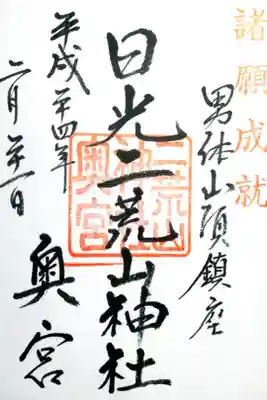 諸願成就
男体山頂鎮座
日光二荒山神社
奥宮
平成二十四年
二月二十一日
二荒山
神社
奥宮